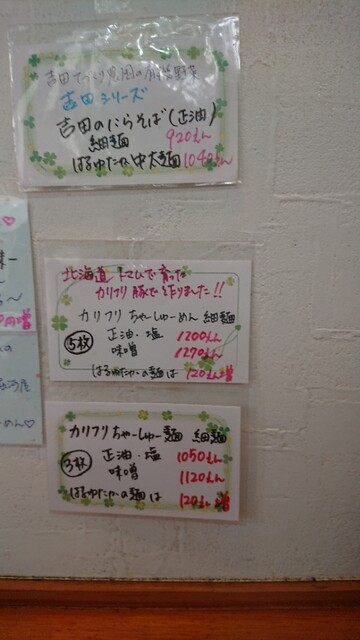 吉田シリーズ
吉田のにらそば(正油)
細麺 920えん
はるゆたか中太麺 1040えん
北海道
カリフリ豚で作りました!!
カリフリちゃーしゅーめん 細麺
5枚
正油・塩 1200えん
味噌 1270えん
はるゆたかの麺は 120えん増
カリフリちゃーしゅー麺 細麺
3枚
正油・塩 1050えん
味噌 1120えん
はるゆたかの麺は 120えん増